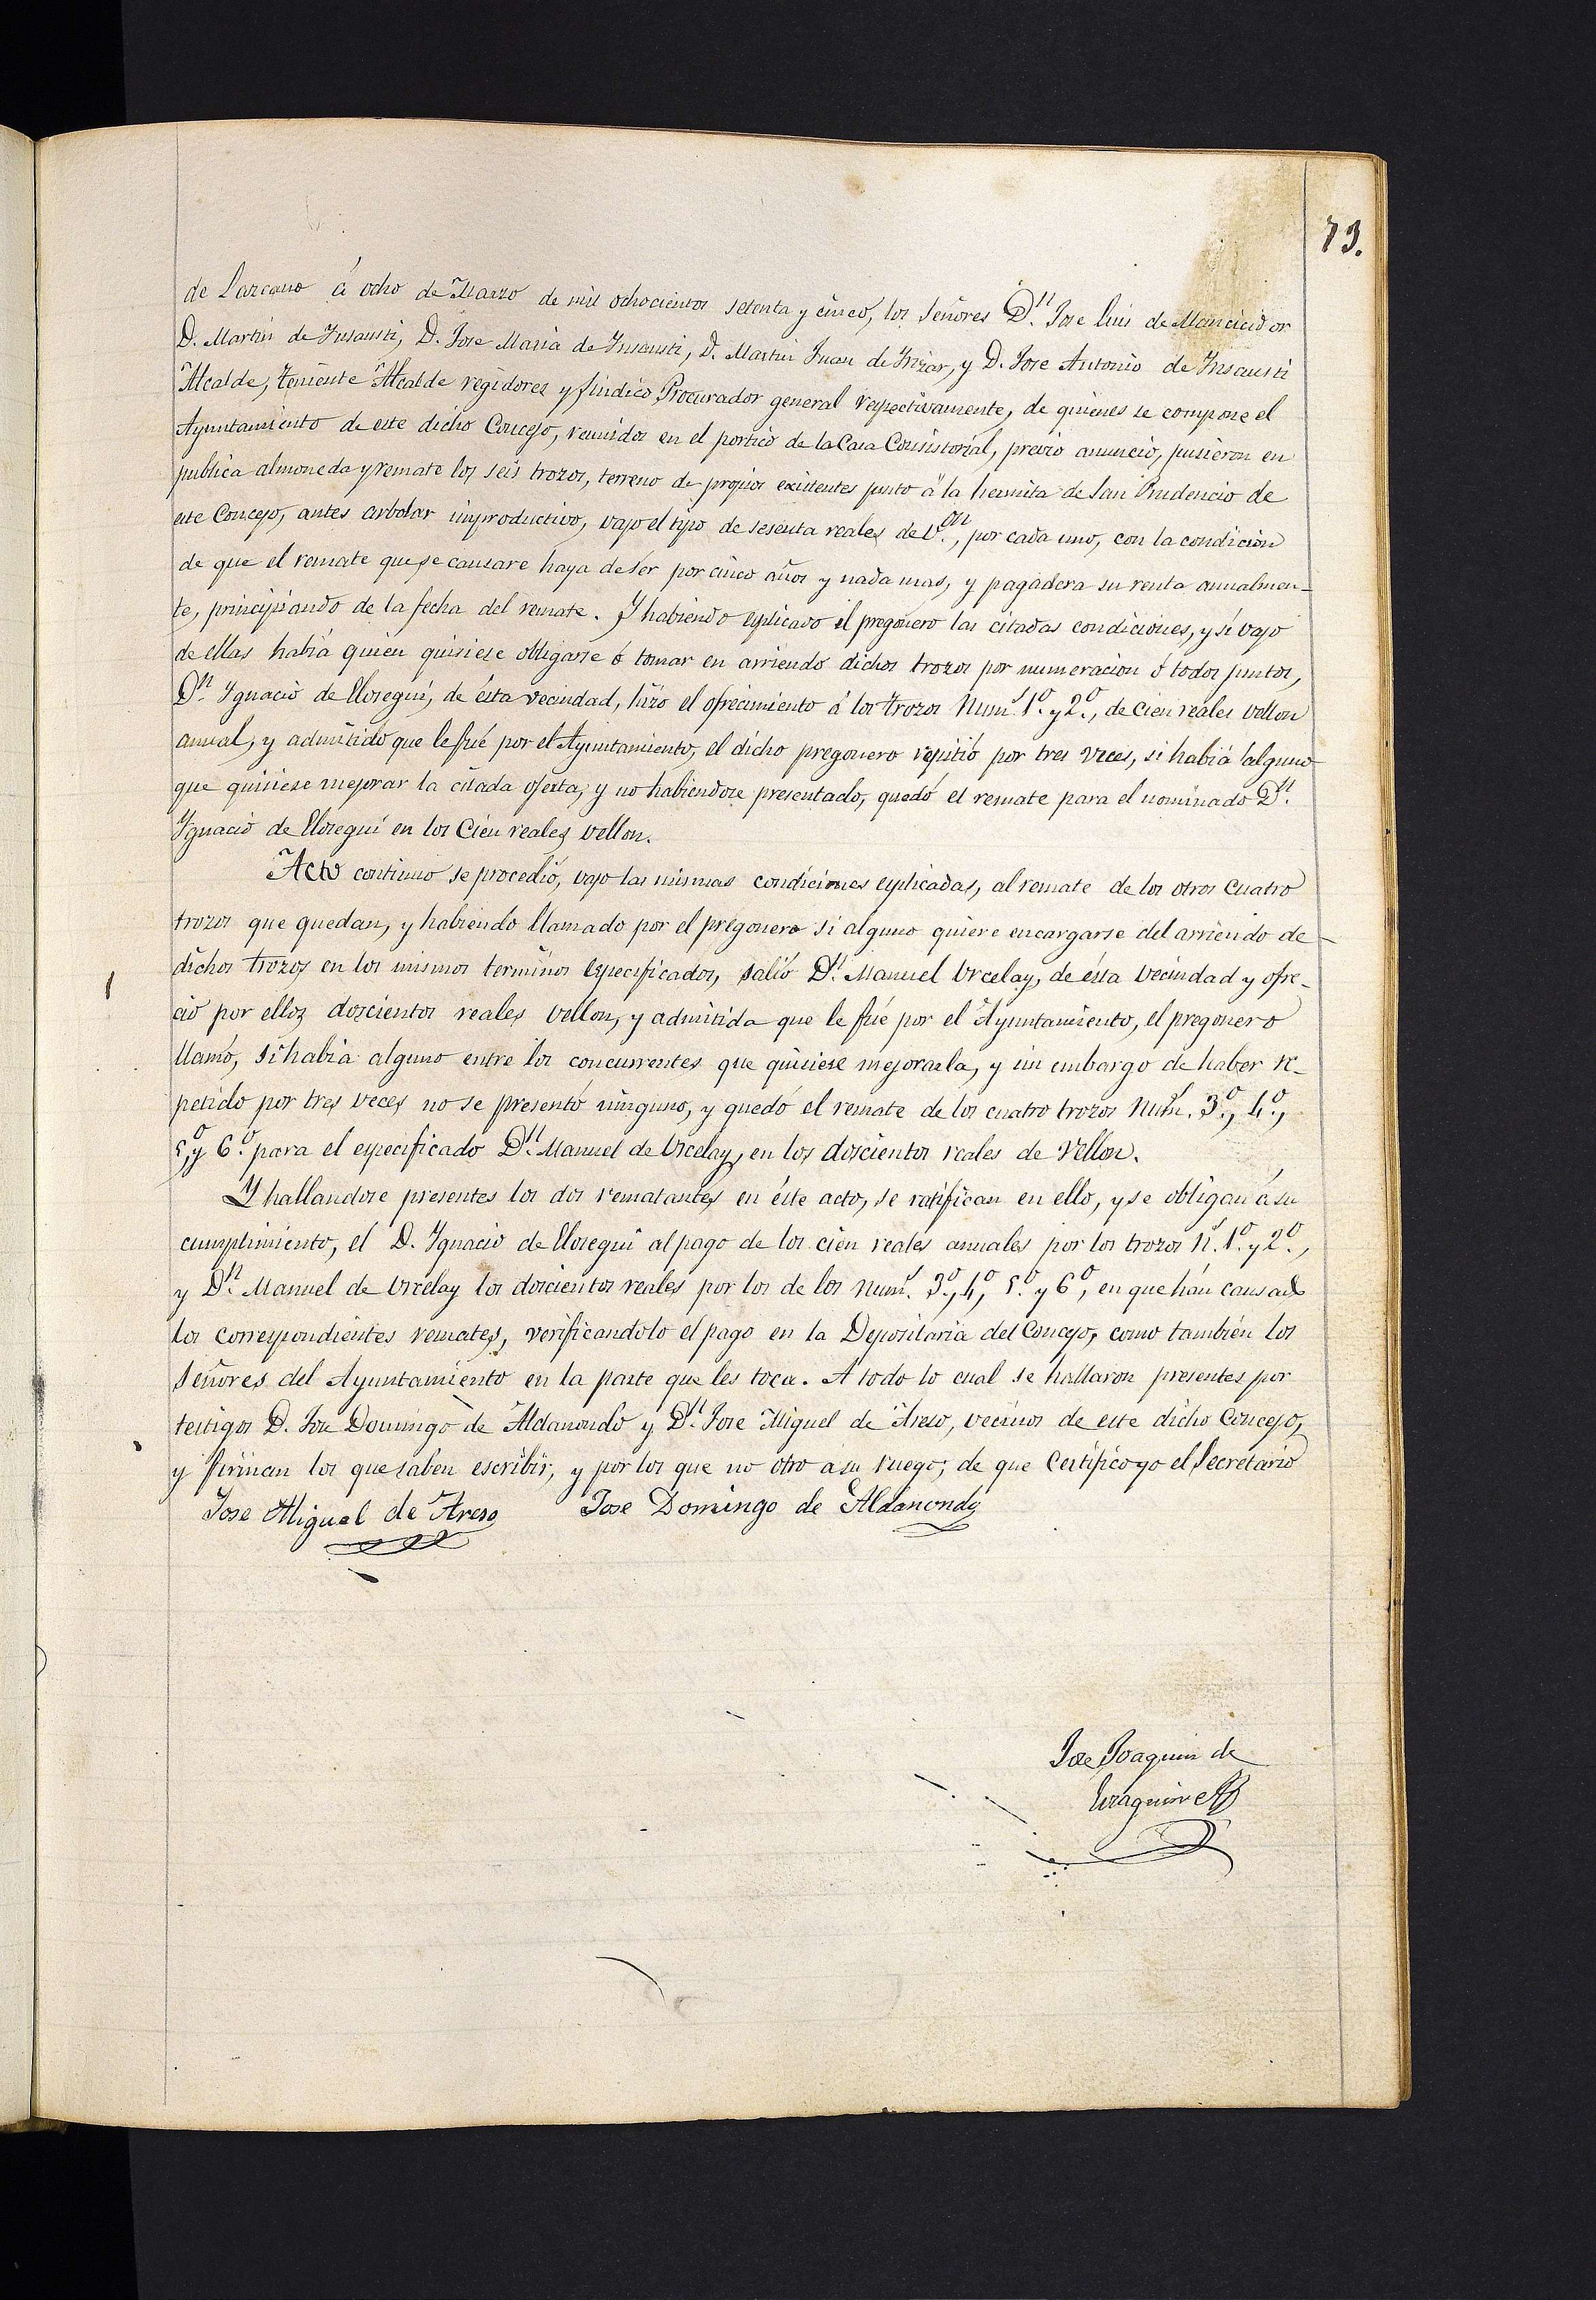 73.
de Lazcano á ocho de Marzo de mil ochocientos setenta y cinco, los Señores Dn. Jose Luis de Mancicidor
D. Martin de Insausti, D. Jose Maria de Insausti, D. Martin Juan de Irizar, y D. Jose Antonio de Insausti
Alcalde, teniente Alcalde regidores y sindico Procurador general respectivamente, de quienes se compone el
Ayuntamiento de este dicho Concejo, reunidos en el portico de la Casa Consistorial, previo anuncio, pusieron en
publica almoneda y remate los seis trozos, terreno de propios existentes junto á la hermita de San Prudencio de
este Concejo, antes arbolar improductivo, vajo el tipo de sesenta reales de v.on, por cada uno, con la condicion
de que el remate que se causare haya de ser por cinco años y nada mas, y pagadera su renta anualmen-
te, principiando de la fecha del remate. Y habiendo esplicado el pregonero las citadas condiciones, y si vajo
de ellas habia quien quisiese obligarse ó tomar en arriendo dichos trozos por numeracion ó todos juntos,
Dn. Ignacio de Elosegui, de ésta vecindad, hizo el ofrecimiento á los trozos Nums. 1.º y 2.º, de cien reales vellon
anual, y admitido que le fué por el Ayuntamiento, el dicho pregonero repitió por tres veces, si habiá alguno
que quisiese mejorar la citada oferta, y no habiendose presentado, quedó el remate para el nominado Dn.
Ygnacio de Elosegui en los Cien reales vellon.
Acto continuo se procedió, vajo las mismas condiciones esplicadas, al remate de los otros cuatro
trozos que quedan, y habiendo llamado por el pregonero si alguno quiere encargarse del arriendo de
dichos trozos en los mismos terminos especificados, salió Dn. Manuel Urcelay, de ésta vecindad y ofre-
ció por ellos doscientos reales vellon, y admitida que le fué por el Ayuntamiento, el pregonero
llamó, si habia alguno entre los concurrentes que quisiese mejorarla, y sin embargo de haber re-
petido por tres veces no se presentó ninguno, y quedó el remate de los cuatro trozos Nums. 3.º, 4.º,
5.º y 6.º para el especificado Dn. Manuel de Urcelay, en los doscientos reales de Vellon.
Y hallandose presentes los dos rematantes en éste acto, se ratifican en ello, y se obligan á su
cumplimiento, el D. Ygnacio de Elosegui al pago de los cien reales anuales por los trozos ns. 1.º y 2.º,
y Dn. Manuel de Urcelay los doscientos reales por los de los nums. 3.º, 4.º, 5.º y 6.º, en que hán causado
los correspondientes remates, verificandolo el pago en la Depositaria del Concejo, como también los
Señores del Ayuntamiento en la parte que les toca. A todo lo cual se hallaron presentes por
testigos D. Jose Domingo de Aldanondo y Dn. Jose Miguel de Areso, vecinos de este dicho Concejo,
y firman los que saben escribir, y por los que no otro á su ruego, de que Certifico yo el Secretario
Jose Miguel de Areso Jose Domingo de Aldanondo
Jose Joaquin de